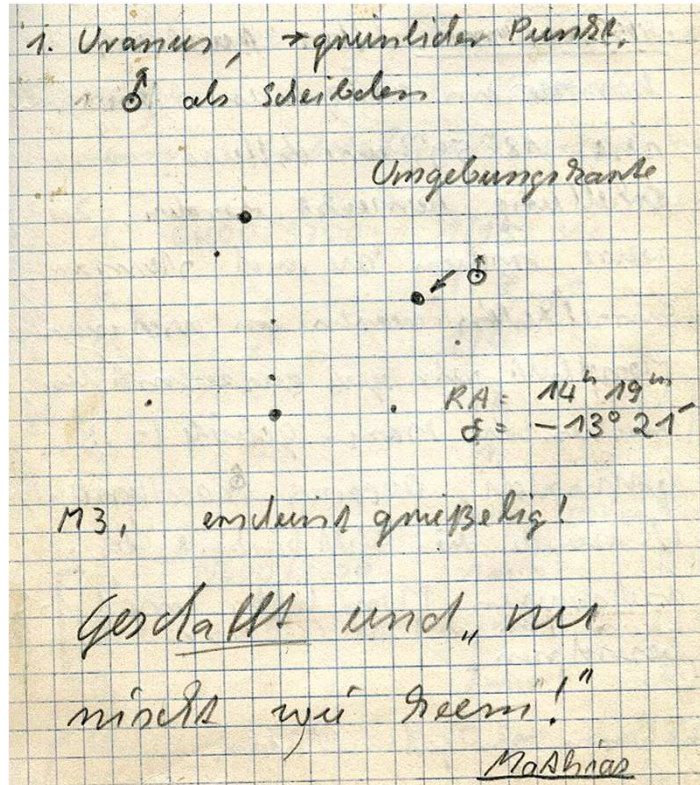 1. Uranus, → grünlicher Punkt,
⛢ als Scheibchen
Umgebungskarte
⛢
RA = 14ʰ 19ᵐ
δ = -13° 21'
M3, erscheint grießelig!
Geschafft und „nu
nischt wie heem!"
Mathias